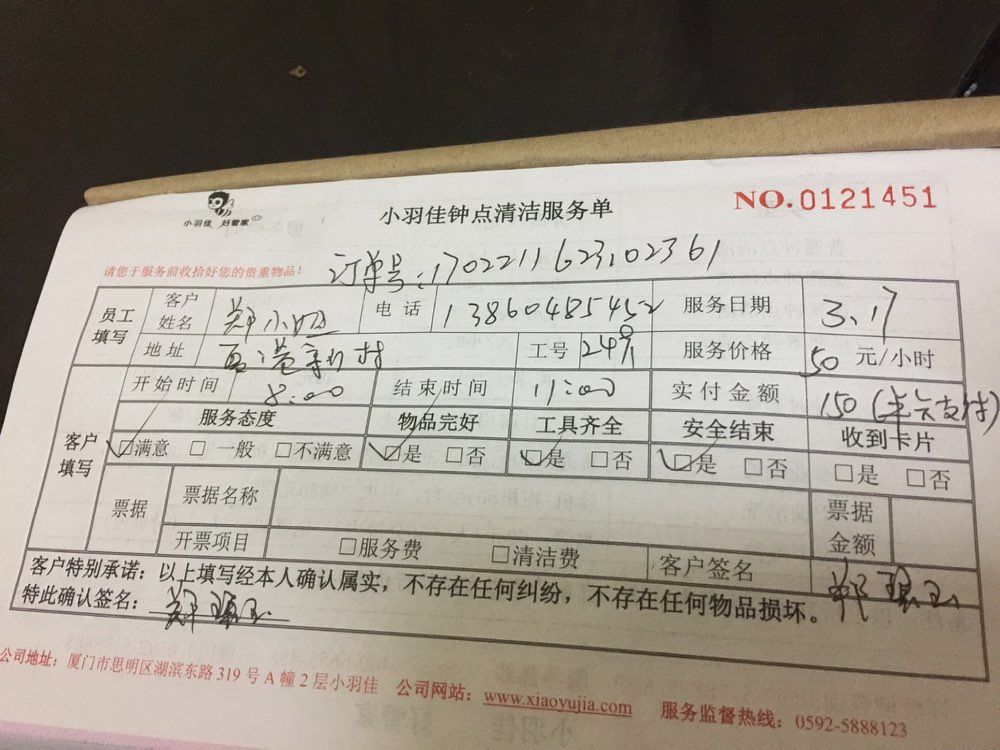 小羽佳 好管家
小羽佳钟点清洁服务单
NO.0121451
请您于服务前收拾好您的贵重物品！
订单号：1702211623102361
员工填写 客户姓名 郑小姐 电话 13860485452 服务日期 3.17
地址 新村 工号 249 服务价格 50 元/小时
客户填写 开始时间 8:00 结束时间 11:00 实付金额 150
服务态度 物品完好 工具齐全 安全结束 收到卡片
☑满意 □一般 □不满意 ☑是 □否 ☑是 □否 ☑是 □否 □是 □否
票据 票据名称 票据金额
开票项目 □服务费 □清洁费 客户签名 郑
客户特别承诺：以上填写经本人确认属实，不存在任何纠纷，不存在任何物品损坏。
特此确认签名：郑
公司地址：厦门市思明区湖滨东路 319 号 A 幢 2 层小羽佳 公司网站：www.xiaoyujia.com 服务监督热线：0592-5888123